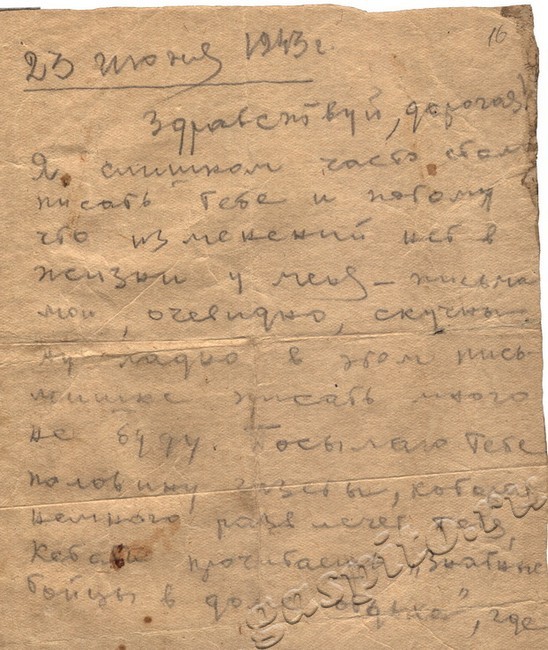 16
23 июня 1943 г.
Здравствуй, дорогая!
Я слишком часто стал
писать тебе и потому
что изменений нет в
жизни у меня – письма
мои, очевидно, скучны.
Ну ладно в этом пись-
мишке писать много
не буду. Посылаю тебе
половину газеты, которая
немного развлечет тебя,
Кстати прочитаешь „Знатные
бойцы в доме отдыха“, где
gaspito.ru